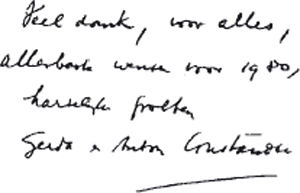 Veel dank, voor alles,
allerbeste wensen voor 1980,
hartelijke groeten
Gerda en Anton Constandse